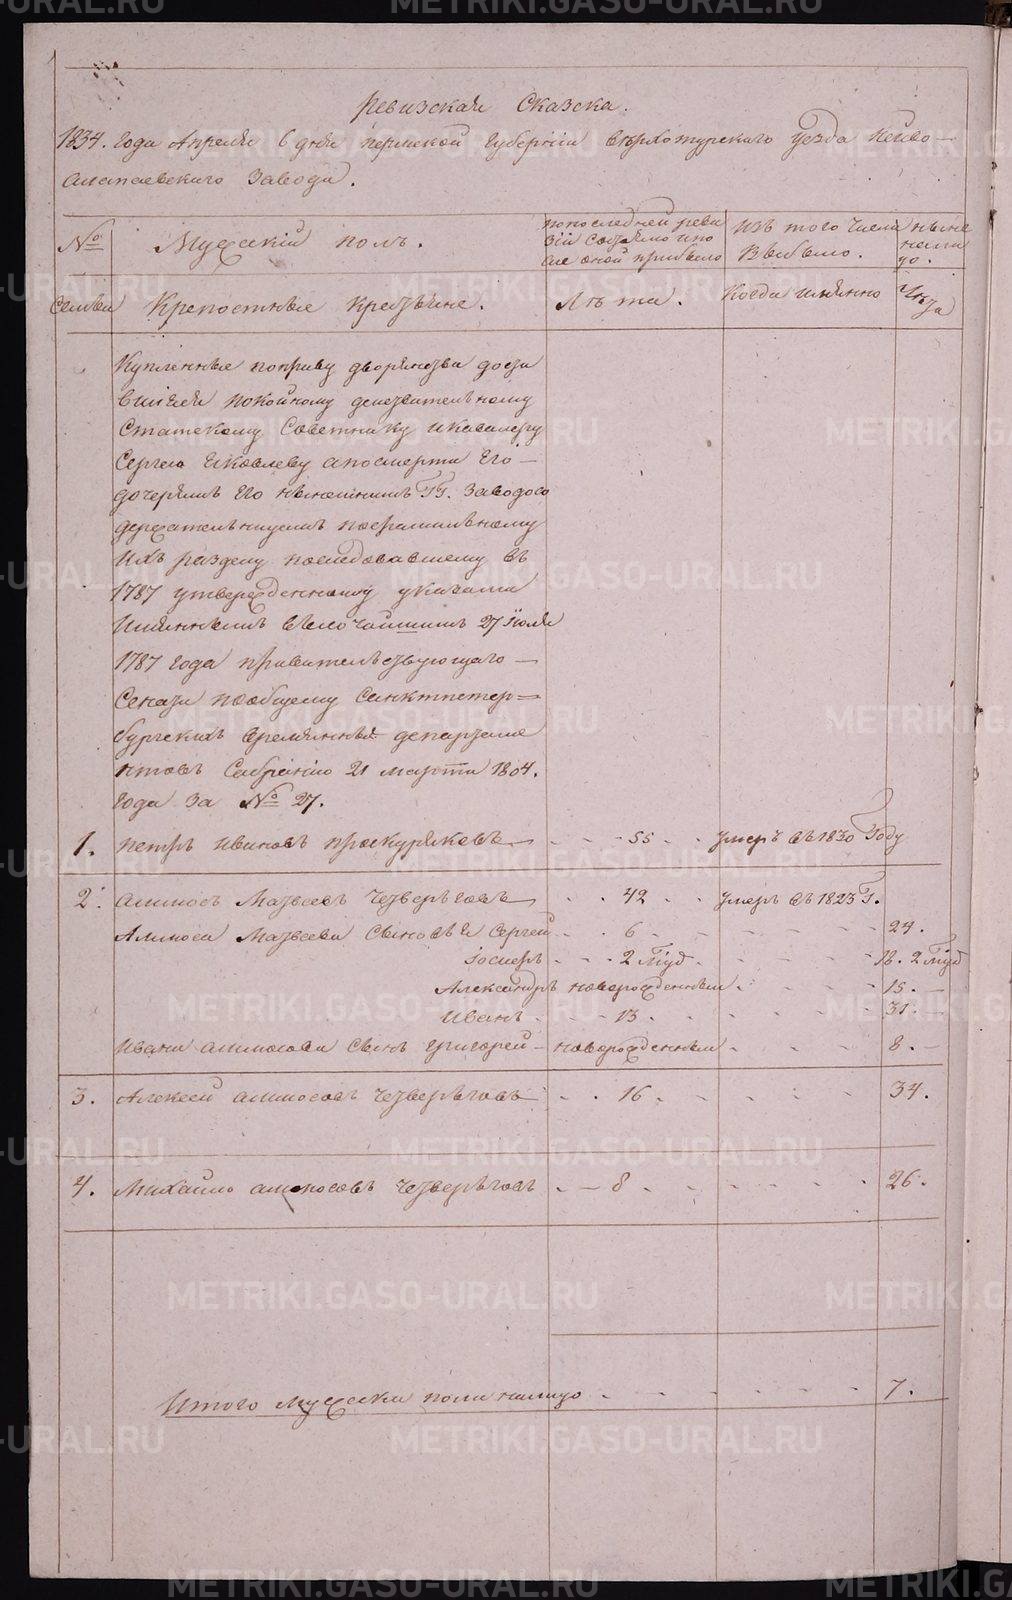 Ревизская Сказска.
1834. года Апреля 6 дня пермской Губернiи верхотурского уезда Нейво—
алапаевского завода.
№ Мужескiй полъ. попоследней реви
зiи состояло ипо
сле оной прибыло изъ того числа
выбыло. ныне
нали
цо.
Семьи Крепостные крестьяне. Лѣта. Когда имянно Лѣта
Купленные поправу дворянства доста
вшiяся покойному действительному
Статскому Советнику икавалеру
Сергею Яковлеву апосмерти Его—
дочерямъ Его нынешнимъ ГГ. Заводосо
держательницамъ пофамильному
Ихъ разделу последовавшему въ
1787 утвержденному указами
Имяннымъ высочайшимъ 27 Iюля
1787 года правительствующаго—
Сената пообщему Санктпетер=
бургскихъ времянныхъ департаме
нтовъ Собранiю 21 марта 1804.
года за № 27.
1. петръ ивановъ проскуряковъ 55 умеръ въ 1830 Году
2. аммосъ Матвеевъ Четверьговъ 42 умеръ въ 1823 Г.
Аммоса Матвеева сыновья Сергей 6 24.
Iосифъ 2 Мѣд 18. 2 Мѣд
Александръ новорожденный 15.
Иванъ 13. 31.
Ивана аммосова сынъ григорей новорожденный 8.
3. Алексей аммосовъ Четверьговъ 16. 34.
4. Михайло аммосовъ Четверьговъ 8. 26.
Итого Мужеска пола налицо 7.
METRIKI.GASO-URAL.RU